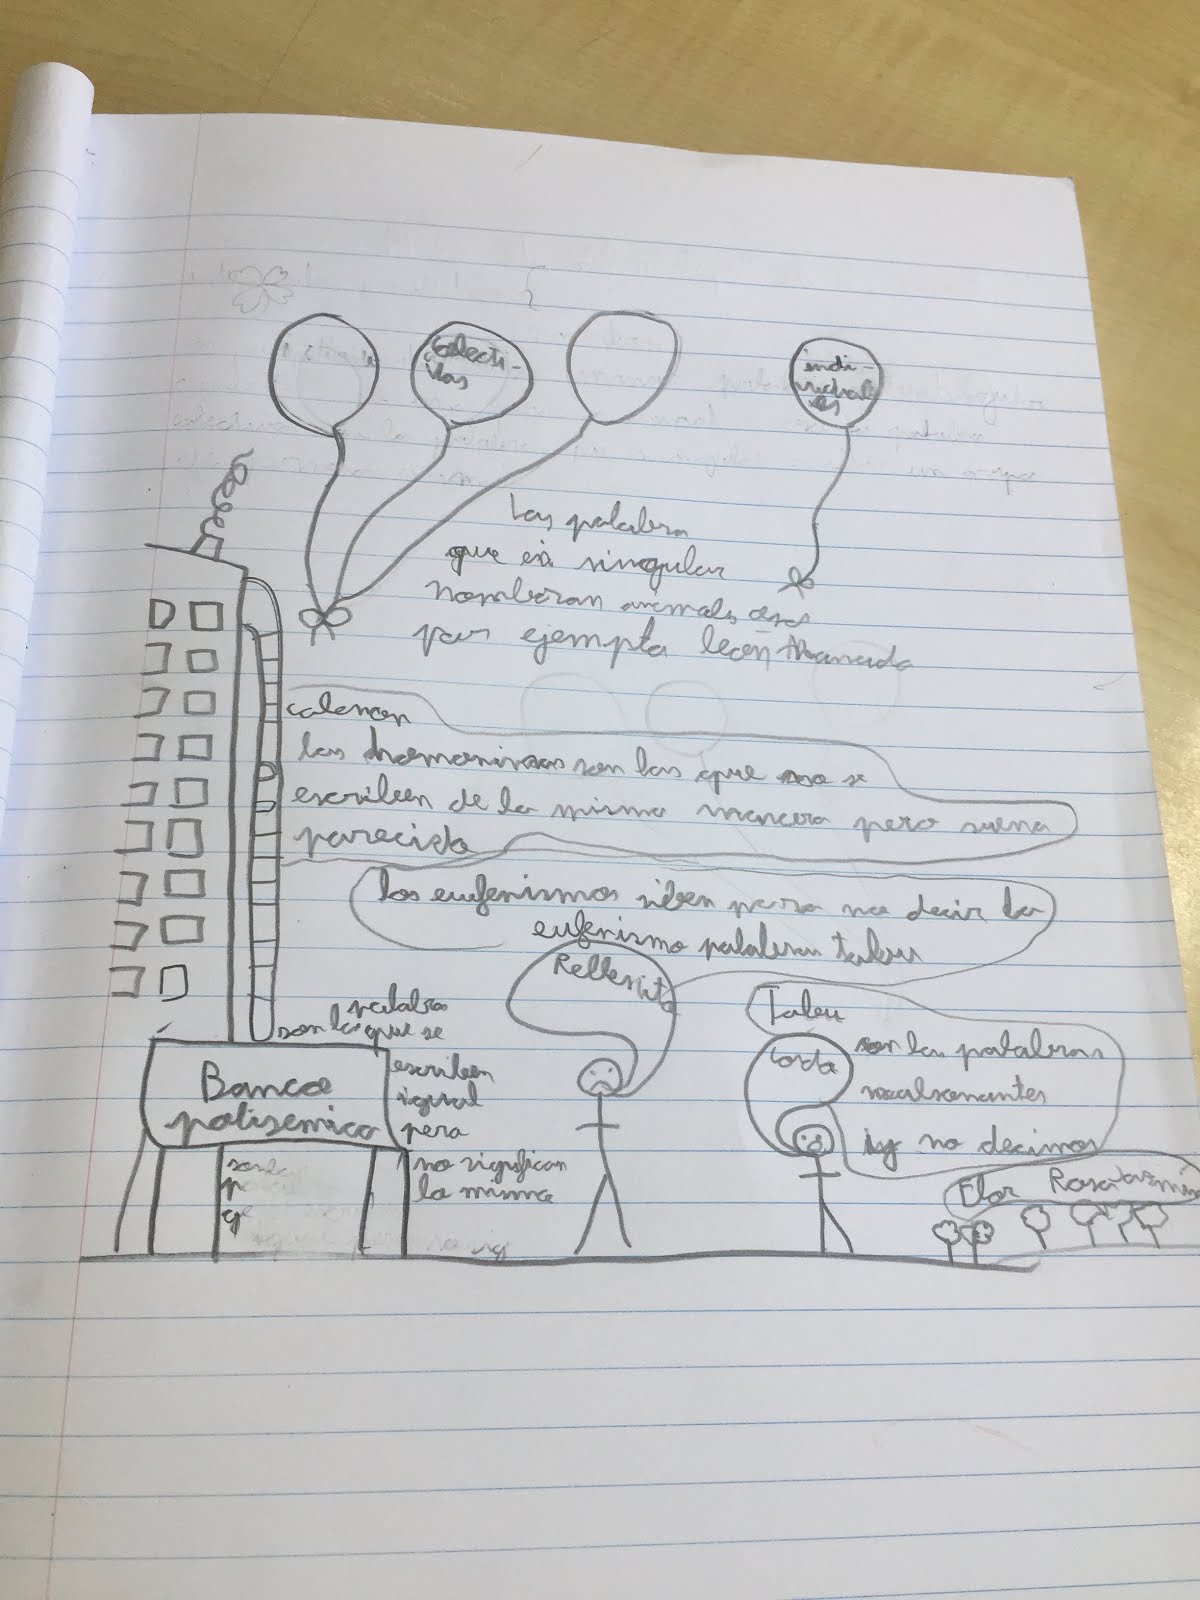 colecti-
vos
indi-
viduales
Las palabra
que en singular
nombran animals osas
por ejempta león Manada
calencon
las homonimas son las que no se
escriben de la misma manera pero suena
parecido
los eufenismos siben para no decir la
eufenismo palabran tabu
Rellenita
Tabu
Gorda
son las palabras
malsonantes
y no decimos
Flor Rosa Jazmin
palabra
son las que se
escriben
igual
pero
no significan
la misma
Banco
polisemico